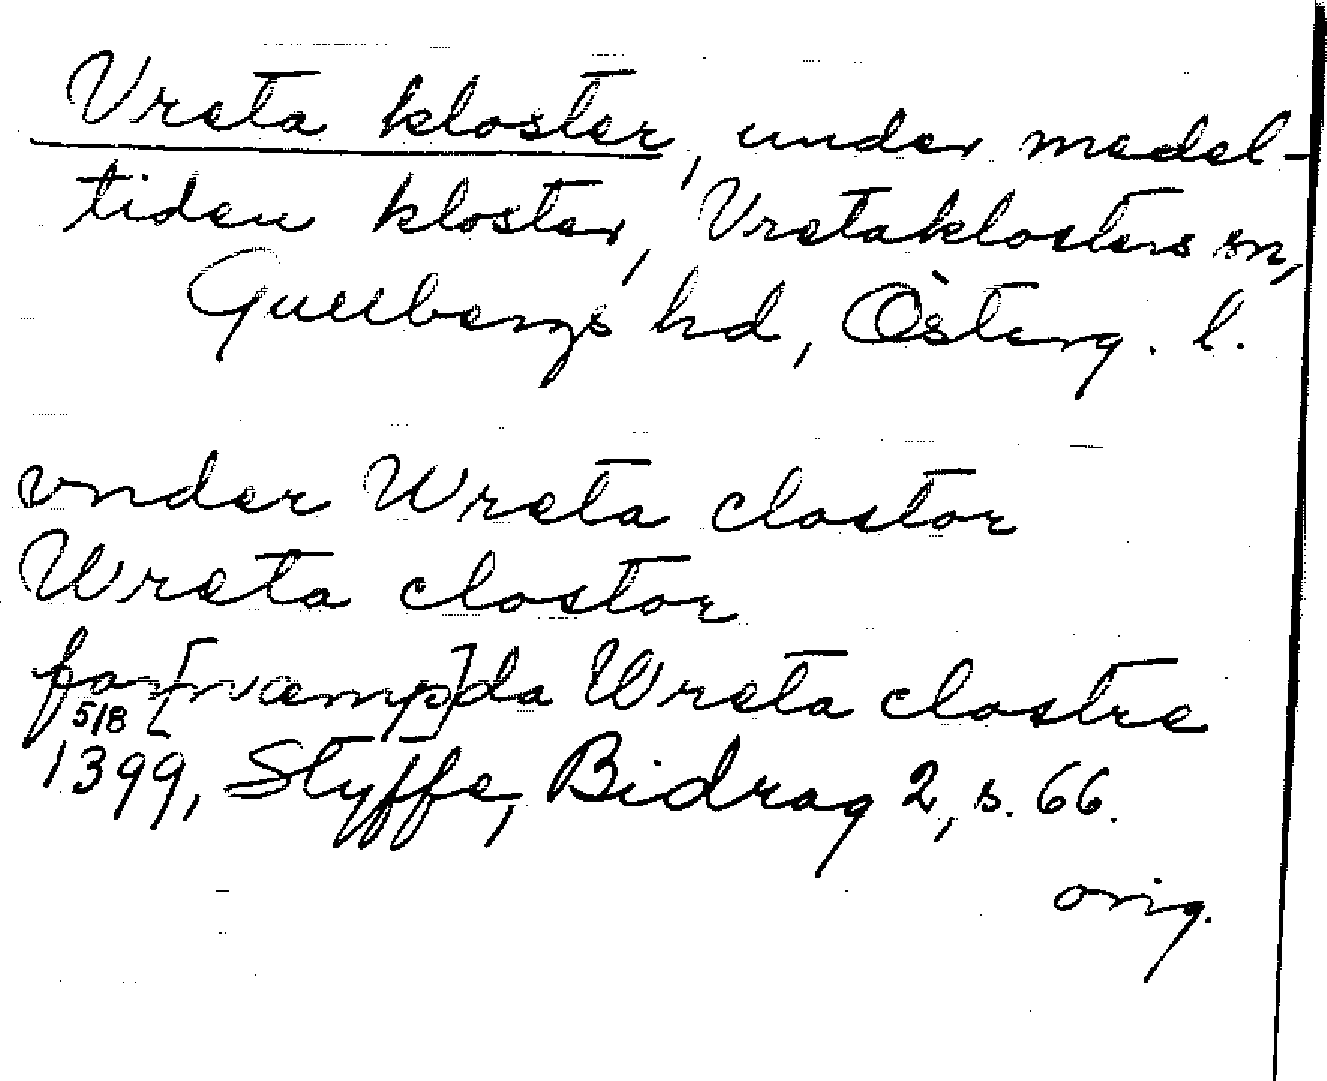 Vreta kloster, under medel-
tiden kloster, Vretaklosters sn,
Gullbergs hd, Österg. l.
vnder Wreta clostor
Wreta clostor
for[næmp]da Wreta clostre
5/8
1399, Styffe, Bidrag 2, s. 66.
orig.